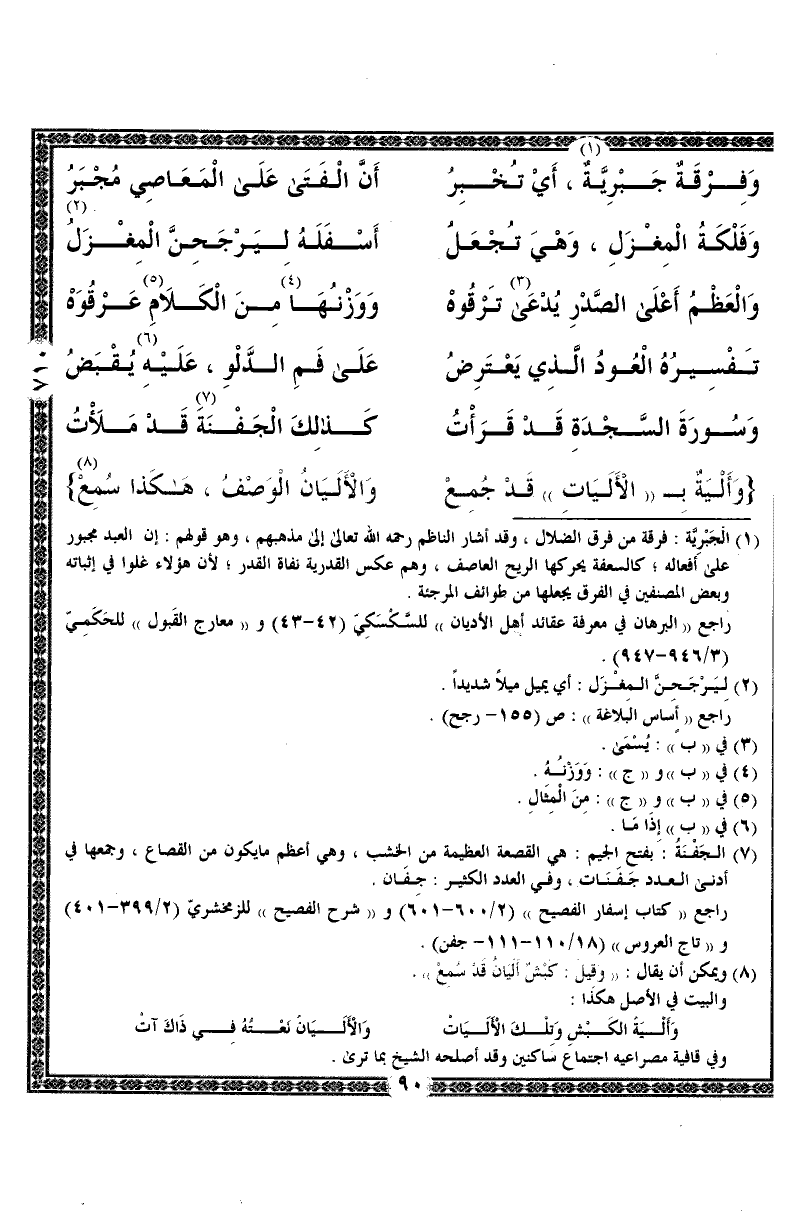 (١)
وَفِـرْقَةٌ جَـبْرِيَّةٌ ، أَيْ تُـخْـبِـرُ أَنَّ الْفَتَىٰ عَلَى الْمَعَاصِي مُجْبَرُ
(٢)
وَفَلْكَةُ الْمِغْزَلِ ، وَهْيَ تُـجْعَلُ أَسْـفَلَهُ لِـيَرْجَحِنَّ الْمِغْـزَلُ
(٣) (٤) (٥)
وَالْعَظْمُ أَعْلَى الصَّدْرِ يُدْعَىٰ تَرْقُوَهْ وَوَزْنُـهَا مِـنَ الْكَلَامِ عَـرْقُوَهْ
(٦)
تَـفْسِيرُهُ الْعُودُ الَّـذِي يَعْـتَرِضُ عَلَـىٰ فَـمِ الـدَّلْوِ ، عَلَيْهِ يُقْبَضُ
(٧)
وَسُـورَةَ السَّـجْدَةِ قَـدْ قَـرَأْتُ كَـذَٰلِكَ الْجَفْـنَةَ قَـدْ مَـلَأْتُ
(٨)
{وَأَلْيَةٌ بِـ « الْأَلَيَاتِ » قَـدْ جُمِـعْ وَالْأَلَيَانُ الْوَصْفُ ، هَـٰكَذَا سُمِعْ}
(١) الْجَبْرِيَّة : فرقة من فرق الضلال ، وقد أشار الناظم رحمه الله تعالىٰ إلىٰ مذهبهم ، وهو قولهم : إن العبد مجبور
علىٰ أفعاله ؛ كالسعفة يحركها الريح العاصف ، وهم عكس القدرية نفاة القدر ؛ لأن هؤلاء غلوا في إثباته
وبعض المصنفين في الفرق يجعلها من طوائف المرجئة .
راجع « البرهان في معرفة عقائد أهل الأديان » للسَّكْسَكِيّ (٤٢-٤٣) و « معارج القبول » للحَكَمِيّ
(٩٤٦/٣-٩٤٧) .
(٢) لِيَرْجَحِنَّ الـمِغْـزَل : أي يميل ميلاً شديداً .
راجع « أساس البلاغة » : ص (١٥٥- رجح) .
(٣) في « ب » : يُسْمَىٰ .
(٤) في « ب » و « ج » : وَوَزْنُـهُ .
(٥) في « ب » و « ج » : مِنَ الْمِثَالِ .
(٦) في « ب » إِذَا مَا .
(٧) الـجَفْنَةُ : بفتح الجيم : هي القصعة العظيمة من الخشب ، وهي أعظم مايكون من القصاع ، وجمعها في
أدنى الـعدد جَفَنَات ، وفي العدد الكثير : جِفَان .
راجع « كتاب إسفار الفصيح » (٦٠٠/٢-٦٠١) و « شرح الفصيح » للزمخشريّ (٣٩٩/٢-٤٠١)
و « تاج العروس » (١١٠/١٨-١١١- جفن) .
(٨) ويمكن أن يقال : « وَقِيلَ : كَبْشٌ أَلَيَانُ قَدْ سُمِعْ » .
والبيت في الأصل هكذا :
وَأَلْيَةُ الكَـبْشِ وَتِلْـكَ الْأَلَيَاتْ وَالْأَلَـيَانُ نَعْـتُهُ فِـي ذَاكَ آتْ
وفي قافية مصراعيه اجتماع ساكنين وقد أصلحه الشيخ بما ترىٰ .
٩٠
٧١٠